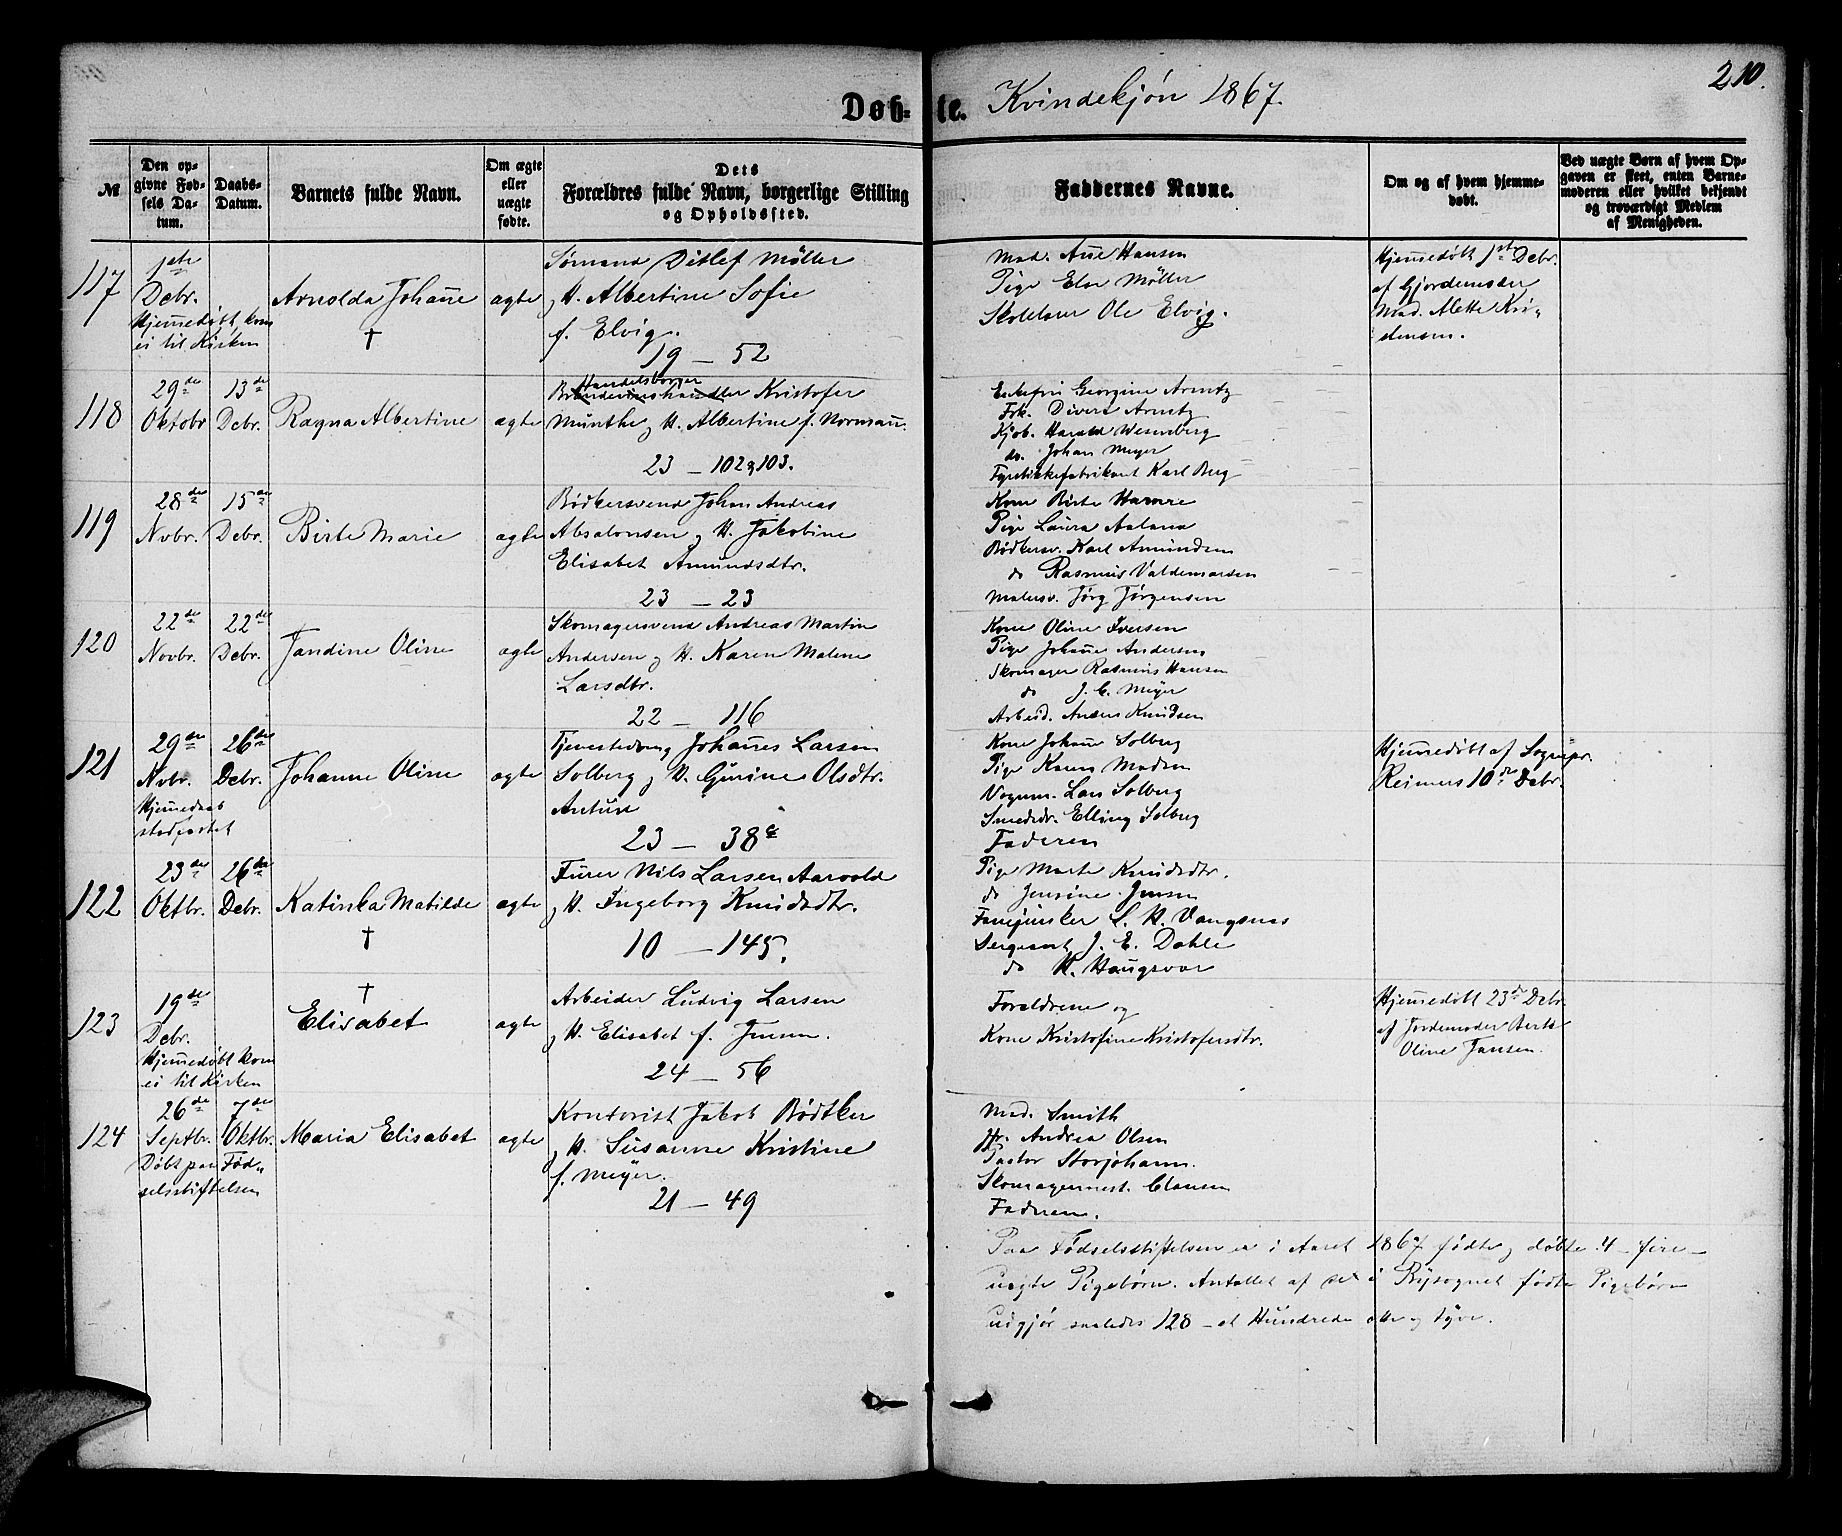 Døb-te. Kvindekjøn 1867.
210.
№
Den op-
givne Fød-
sels Da-
tum.
Daabs-
Datum.
Barnets fulde Navn.
Om ægte
eller
uægte
fødte.
Dets
Forældres fulde Navn, borgerlige Stilling
og Opholdssted.
Faddernes Navne.
Om og af hvem hjemme-
døbt.
Ved uægte Børn af hvem Op-
gaven er skeet, enten Barne-
moderen eller hvilket bekjendt
og troværdigt Medlem
af Menigheden.
117
1ste
Debr.
Hjemedøbt, kom
ei til Kirken
Arnolda Johañe
†
ægte
Sømand Ditlef Møller
og H. Albertine Sofie
f. Elvig.
19 – 52
Mad. Añe Hansen
Pige Elen Møller
Ole Elvig.
Hjemedøbt 1ste Debr.
af Gjordemoder
Mad. Mette Kri-
stensen.
118
29de
Oktobr
13de
Debr.
Ragna Albertine
ægte
Handelsborger
Kristofer
Munthe og H. Albertine f. Normañ.
23 – 102 og 103.
Georgine Arntz
Frk. Divera Arntz
Kjøb. Harald Wesenberg
do. Johan Meyer
Fyrstikkefabrikant Karl Berg
119
28de
Novbr.
15de
Debr.
Birte Marie
ægte
Bødkersvend Johan Andreas
Absalonsen og H. Jakobine
Elisabet Amundsdtr.
23 – 23
Kone Birte Hamre
Pige Laura Aaland
Bødkersv. Karl Amundsen
do Rasmus Valdemarsen
Malersv. Jørg Jørgensen
120
22de
Novbr.
22de
Debr.
Jandine Oline
ægte
Skomagersvend Andreas Martin
Andersen og H. Karen Malene
Larsdtr.
22 – 116
Kone Oline Iversen
Pige Johañe Andersen
Skomager Rasmus Hansen
do J. C. Meyer
Arbeid. Anders Knudsen
121
29de
Novbr.
Hjemedaab
stadfæstet
26de
Debr.
Johanne Oline
ægte
Johañes Larsen
Solberg og H. Gurine Olsdtr.
23 – 38a
Kone Johañe Solberg
Pige Karen Madsen
Vognm. Lars Solberg
Smedsdr. Elling Solberg
Faderen
Hjemedøbt af Sognepr.
Reimers 10de Debr.
122
23de
Oktbr.
26de
Debr.
Katinka Matilde
†
ægte
Furer Nils Larsen Aarvold
og H. Ingeborg Knudsdtr.
10 – 145.
Pige Marte Knudsdtr.
do Jensine Jensen
Fanejunker L. H. Vangsnes
Sergeant J. E. Dahle
do H. Haugsvær
123
19de
Debr.
Hjemedøbt kom
ei til Kirken
†
Elisabet
ægte
Arbeider Ludvig Larsen
og H. Elisabet f. Jensen.
24 – 56
Forældrene og
Kone Kristofine Kristofersdtr.
Hjemedøbt 23de Debr.
af Jordemoder Berte
Oline Jansen.
124
26de
Septbr.
7de
Oktbr.
Døbt paa Fød-
selsstiftelsen
Maria Elisabet
ægte
Kontorist Jakob Bødtker
og H. Susanne Kristine
f. Meyer.
21 – 49
Mad. Smith
Jfr. Andrea Olsen
Pastor Storjohann.
Skomagermest. Clausen
Faderen.
Paa Fødselsstiftelsen er i Aaret 1867 fødte og døbte 4 – fire –
uægte Pigebørn. Antallet af de i Bysognet fødte Pigebørn
udgjør saaledes 128 – et Hundrede otte og tyve.